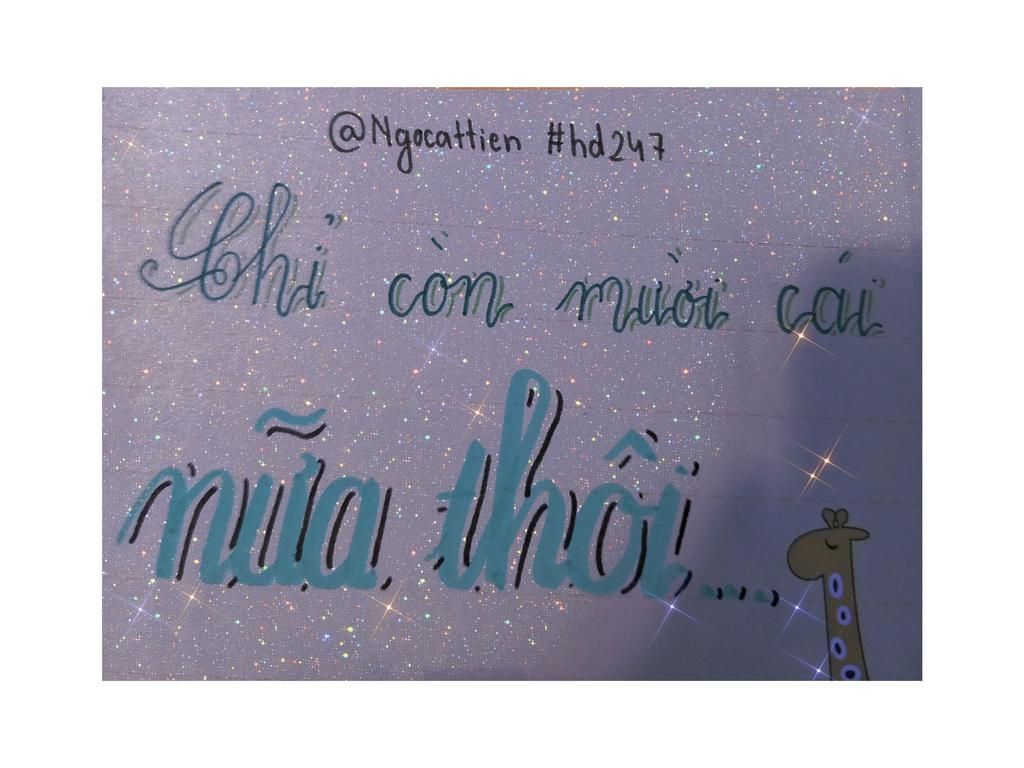 @Ngocattien #hd247
Chỉ còn mười cái
nữa thôi....